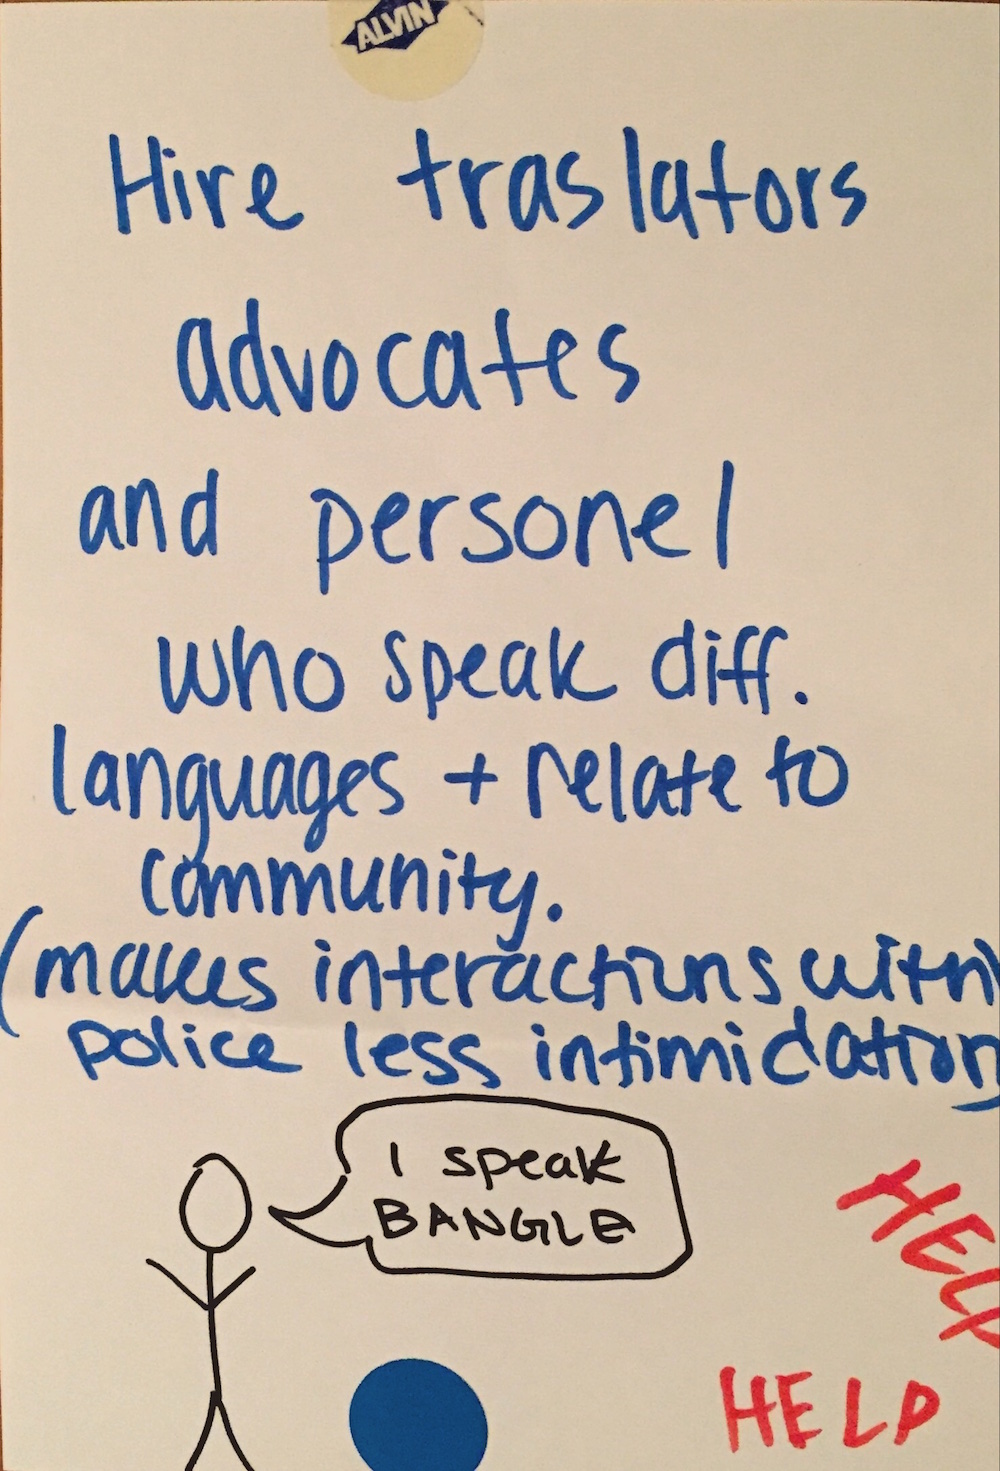 ALVIN
Hire traslators
advocates
and personel
who speak diff.
languages + relate to
community.
(makes interactions with
police less intimidation)
I speak
BANGLA
HELP
HELP